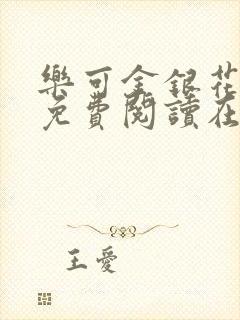 樂可金銀花
免費閱讀在
王愛